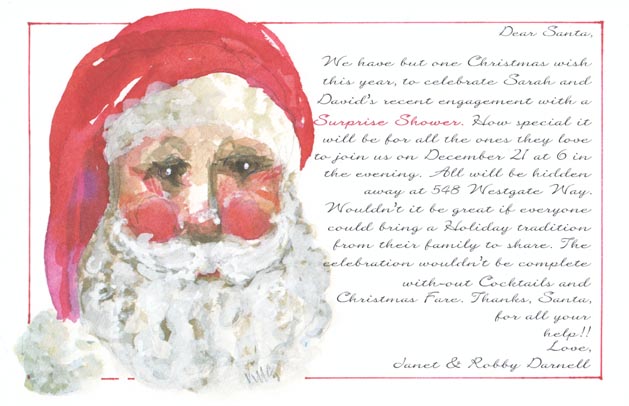 Dear Santa,
We have but one Christmas wish
this year, to celebrate Sarah and
David's recent engagement with a
Surprise Shower. How special it
will be for all the ones they love
to join us on December 21 at 6 in
the evening. All will be hidden
away at 548 Westgate Way.
Wouldn't it be great if everyone
could bring a Holiday tradition
from their family to share. The
celebration wouldn't be complete
with-out Cocktails and
Christmas Fare. Thanks, Santa,
for all your
help!!
Love,
Janet & Robby Darnell